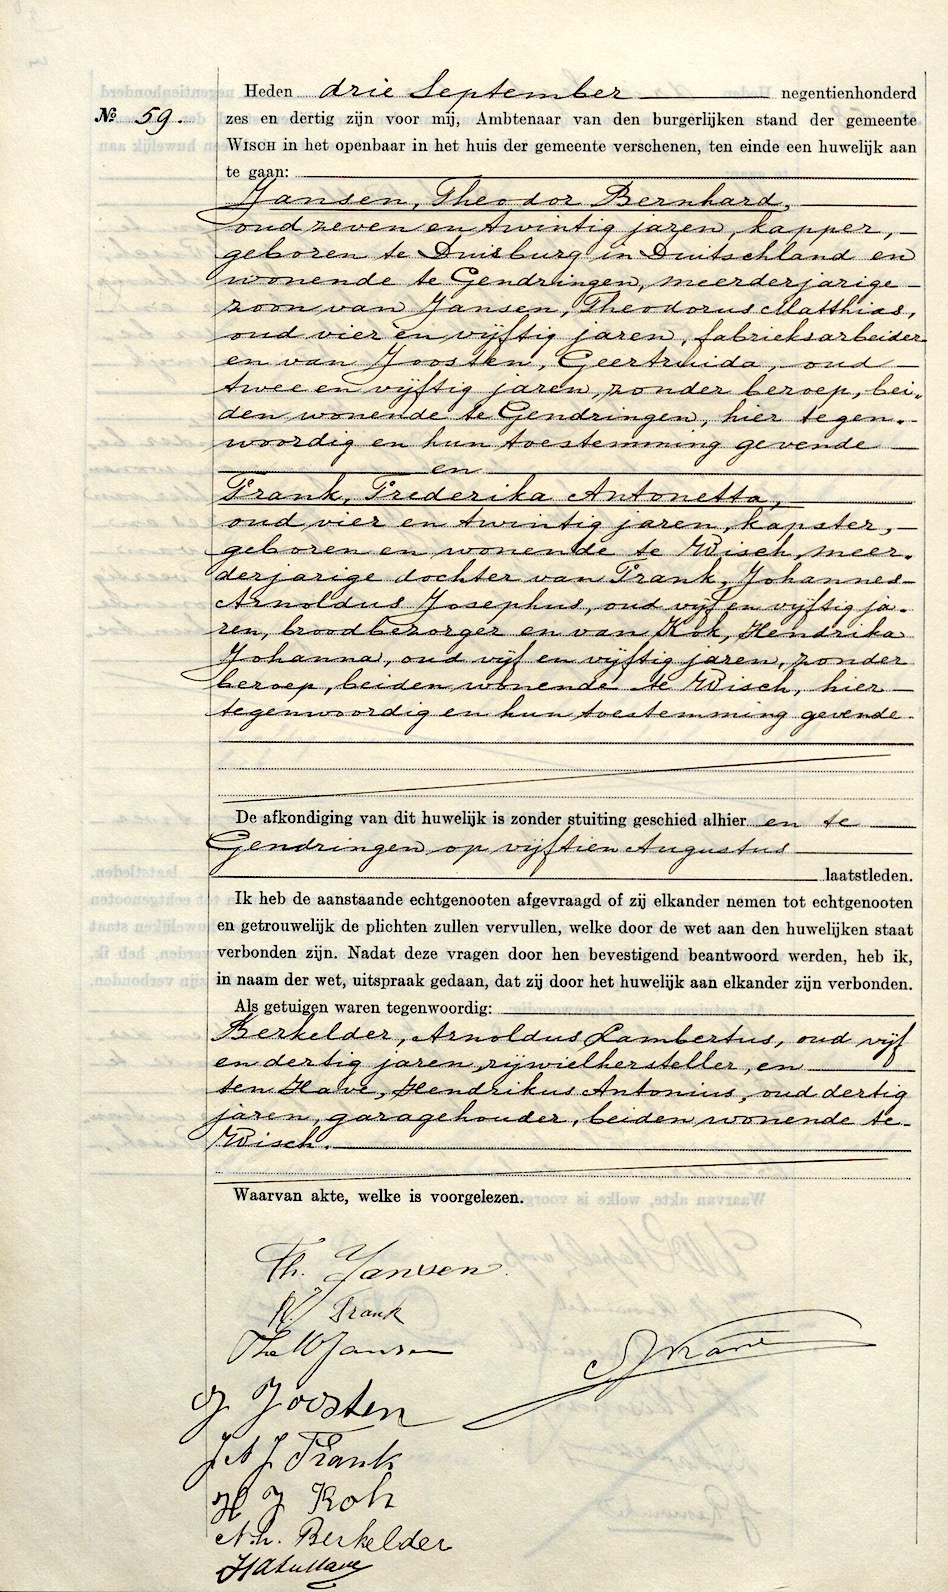 Heden drie September negentienhonderd
№ 59. zes en dertig zijn voor mij, Ambtenaar van den burgerlijken stand der gemeente
WISCH in het openbaar in het huis der gemeente verschenen, ten einde een huwelijk aan
te gaan:
Jansen, Theodor Bernhard,
oud zeven en twintig jaren, kapper,
geboren te Duisburg in Duitschland en
wonende te Gendringen, meerderjarige
zoon van Jansen, Theodorus Matthias,
oud vier en vijftig jaren, fabrieksarbeider
en van Joosten, Geertruida, oud
twee en vijftig jaren, zonder beroep, bei„
den wonende te Gendringen, hier tegen-
woordig en hun toestemming gevende
en
Frank, Frederika Antonetta,
oud vier en twintig jaren, kapster,
geboren en wonende te Wisch, meer-
derjarige dochter van Frank, Johannes
Arnoldus Josephus, oud vijf en vijftig ja-
ren, broodbezorger en van Kok, Hendrika
Johanna, oud vijf en vijftig jaren, zonder
beroep, beiden wonende te Wisch, hier
tegenwoordig en hun toestemming gevende
De afkondiging van dit huwelijk is zonder stuiting geschied alhier en te
Gendringen op vijftien Augustus
laatstleden.
Ik heb de aanstaande echtgenooten afgevraagd of zij elkander nemen tot echtgenooten
en getrouwelijk de plichten zullen vervullen, welke door de wet aan den huwelijken staat
verbonden zijn. Nadat deze vragen door hen bevestigend beantwoord werden, heb ik,
in naam der wet, uitspraak gedaan, dat zij door het huwelijk aan elkander zijn verbonden.
Als getuigen waren tegenwoordig:
Berkelder, Arnoldus Lambertus, oud vijf
en dertig jaren, rijwielhersteller, en
ten Have, Hendrikus Antonius, oud dertig
jaren, garagehouder, beiden wonende te
Wisch.
Waarvan akte, welke is voorgelezen.
Th. Jansen.
Frank
Jansen
J Joosten
J A J Frank
H J Kok
Berkelder